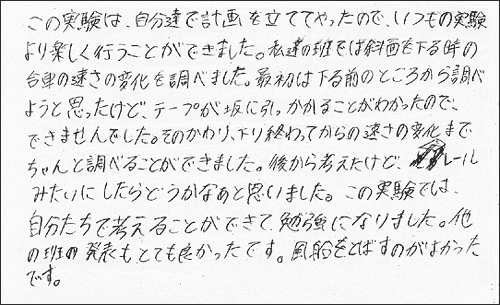 この実験は、自分達で計画を立ててやったので、いつもの実験
より楽しく行うことができました。私達の班では斜面を下る時の
台車の速さの変化を調べました。最初は下る前のところから調べ
ようと思ったけど、テープが坂に引っかかることがわかったので、
できませんでした。そのかわり、下り終わってからの速さの変化まで
ちゃんと調べることができました。後から考えたけど、レール
みたいにしたらどうかなあと思いました。この実験では、
自分たちで考えることができて、勉強になりました。他
の班の発表もとても良かったです。風船をとばすのがよかった
です。